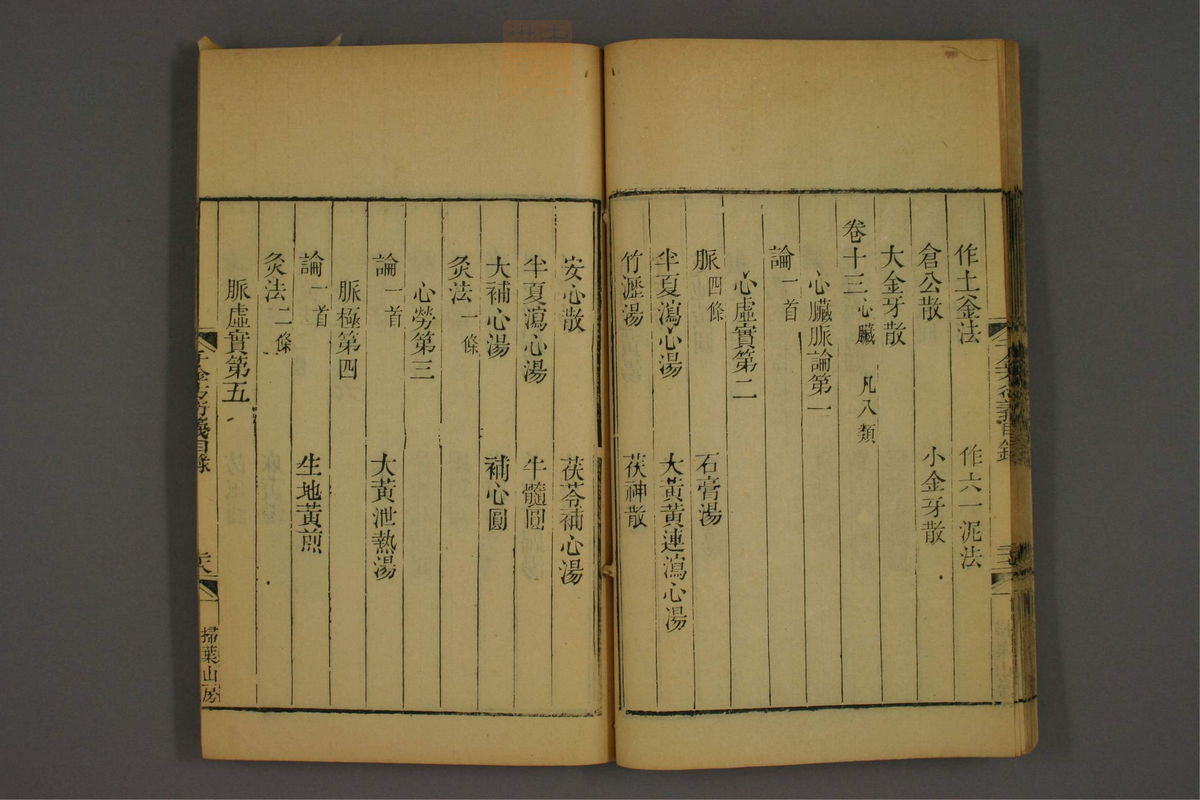 作土釜法 作六一泥法
倉公散 小金牙散
大金牙散
卷十三 心臟 凡八類
心臟脈論第一
論一首
心虛實第二
脈四條 石膏湯
半夏瀉心湯 大黃黃連瀉心湯
竹瀝湯 茯神散
安心散 茯苓補心湯
半夏瀉心湯 牛髓圓
大補心湯 補心圓
灸法一條
心勞第三
論一首 大黃泄熱湯
脈極第四
論一首 生地黃煎
灸法二條
脈虛實第五
千金方衍義目錄
掃葉山房